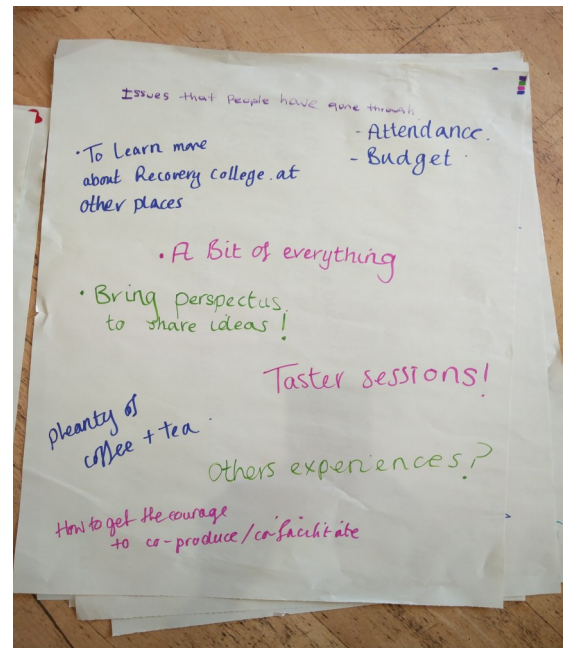 Issues that People have gone through
- Attendance.
- Budget
• To Learn more
about Recovery college at
other places
• A Bit of everything
• Bring perspectus
to share ideas!
Taster sessions!
pleanty of
coffee + tea
Others experiences?
How to get the courage
to co-produce/co-facilitate